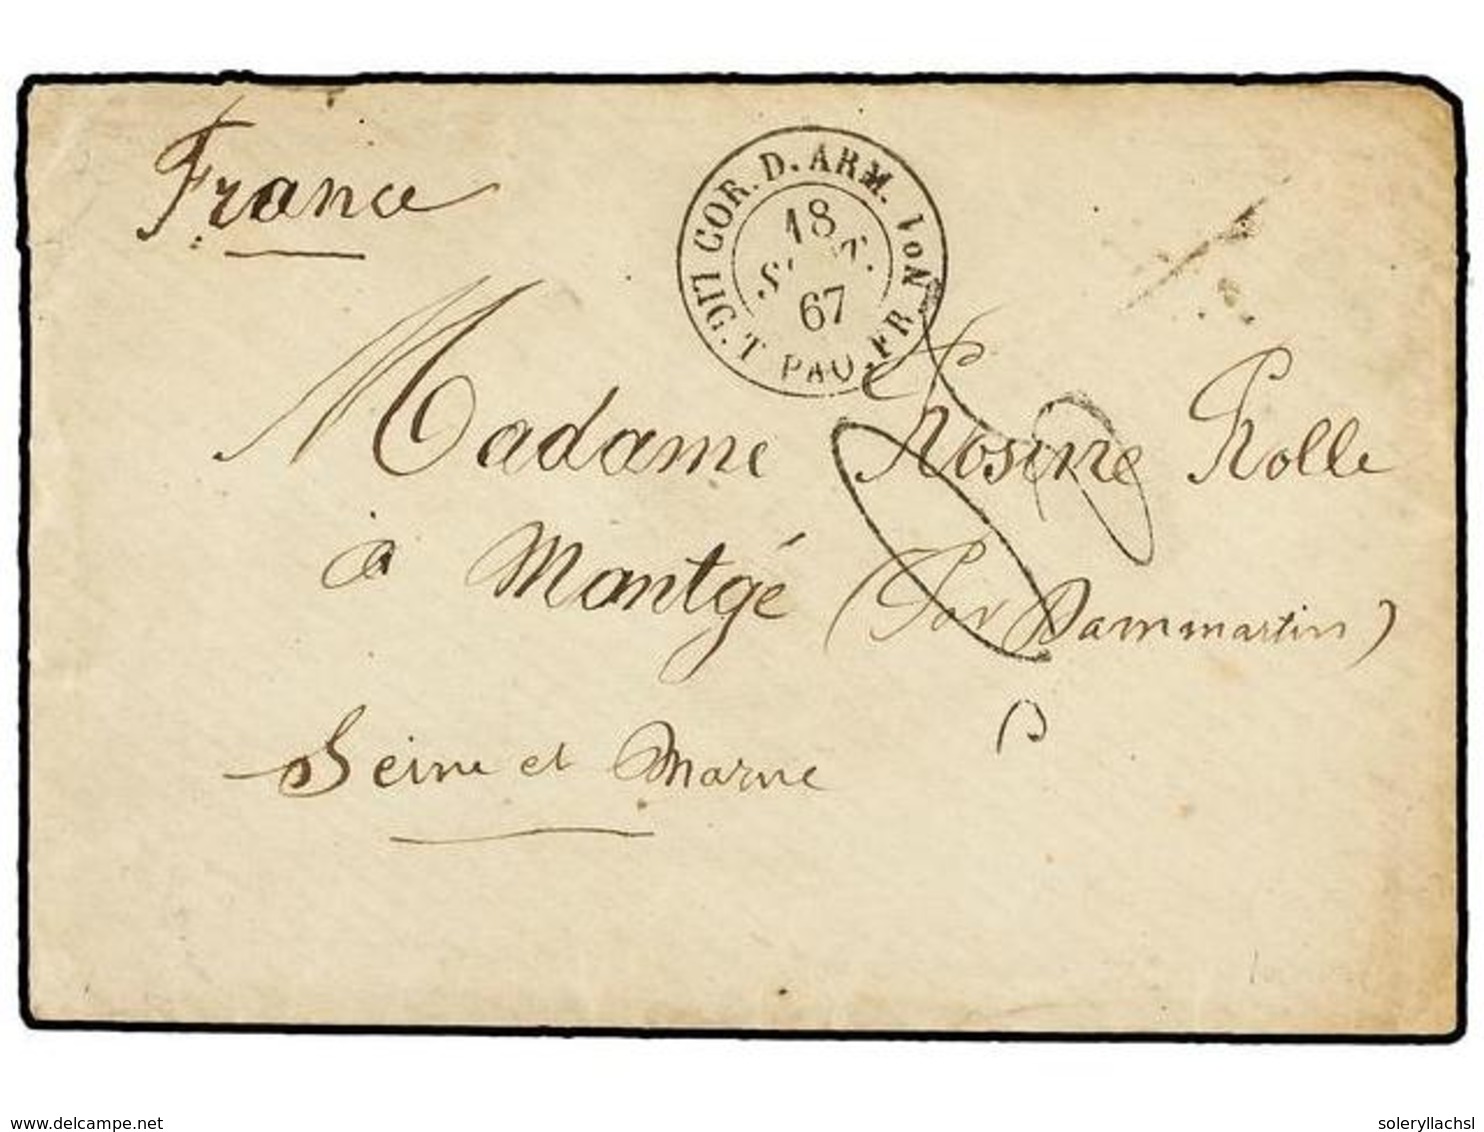 France
COR. D. ARM.
LIG. T PAQ. FR N
18
67
Madame Rosine Rolle
à Montgé (Par Dammartin)
Seine et Marne
delcampe.net
soleryllachsl